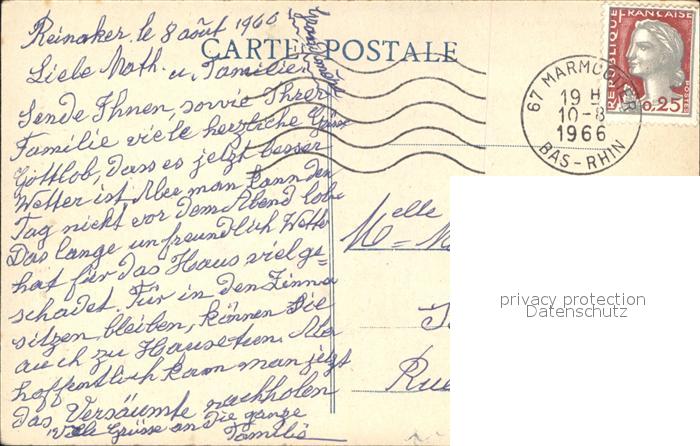 Reinaker. le 8 août 1966
CARTE POSTALE
Liebe Math. u. Familie
Sende Ihnen, sowie Ihrer
Familie viele herzliche Grüsse
Gottlob, dass es jetzt besser
Wetter ist. Aber man kann den
Tag nicht vor dem Abend lobe
Das lange unfreundlich Wetter
hat für das Haus viel ge=
schadet. Für in den Zimma
sitzen, bleiben, können Sie
auch zu Hause tun. Aber
hoffentlich kann man jetzt
das Versäumte nachholen
Viele Grüsse an die ganze
Familie
REPUBLIQUE FRANÇAISE
POSTES
0,25
67 MARMOUTIER
19 H
10-8
1966
BAS-RHIN
Melle
Rue
privacy protection
Datenschutz